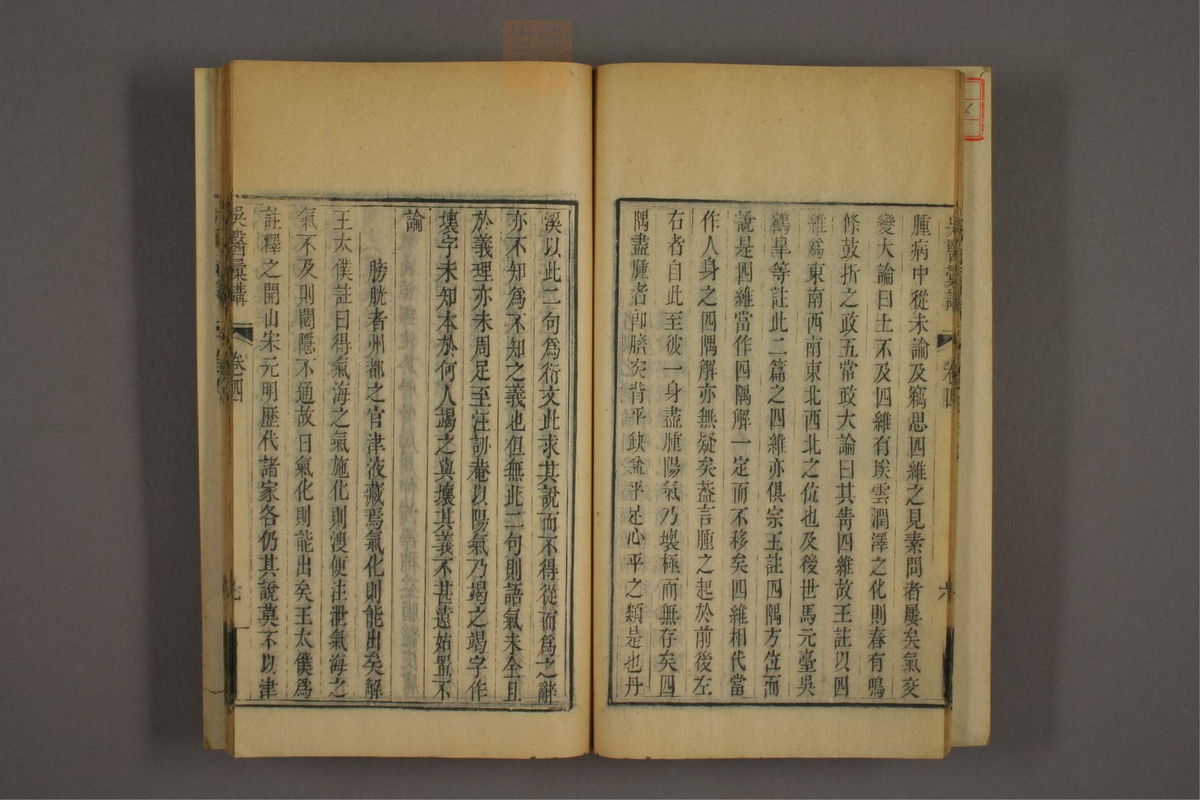 腫病中從未論及竊思四維之見素問者屢矣氣交
變大論曰土不及四維有埃雲潤澤之化則春有鳴
條鼓折之政五常政大論曰其眚四維故王註以四
維爲東南西南東北西北之位也及後世馬元臺吳
鶴臯等註此二篇之四維亦俱宗王註四隅方位而
說是四維當作四隅解一定而不移矣四維相代當
作人身之四隅解亦無疑矣葢言腫之起於前後左
右者自此至彼一身盡腫陽氣乃壞極而無存矣四
隅盡腫者卽臍突背平缺盆平足心平之類是也丹
溪以此二句爲衍文此求其說而不得從而爲之辭
亦不知爲不知之義也但無此二句則語氣未全且
於義理亦未周足至汪訒菴以陽氣乃竭之竭字作
壞字未知本於何人竭之與壞其義不甚遠姑置不
論
膀胱者州都之官津液藏焉氣化則能出矣解
王太僕註曰得氣海之氣施化則溲便注泄氣海之
氣不及則閟隱不通故曰氣化則能出矣王太僕爲
註釋之開山宋元明歷代諸家各仍其說莫不以津
吳醫彙講
卷四
七